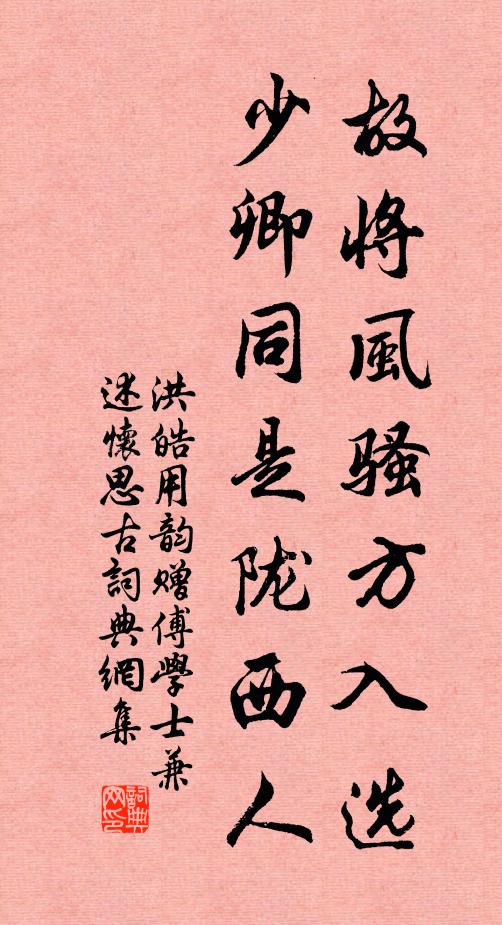 故將風騷方入选
少卿同是陇西人
洪皓用韵赠傅學士兼
述懷思古詞典網集
詞典網印